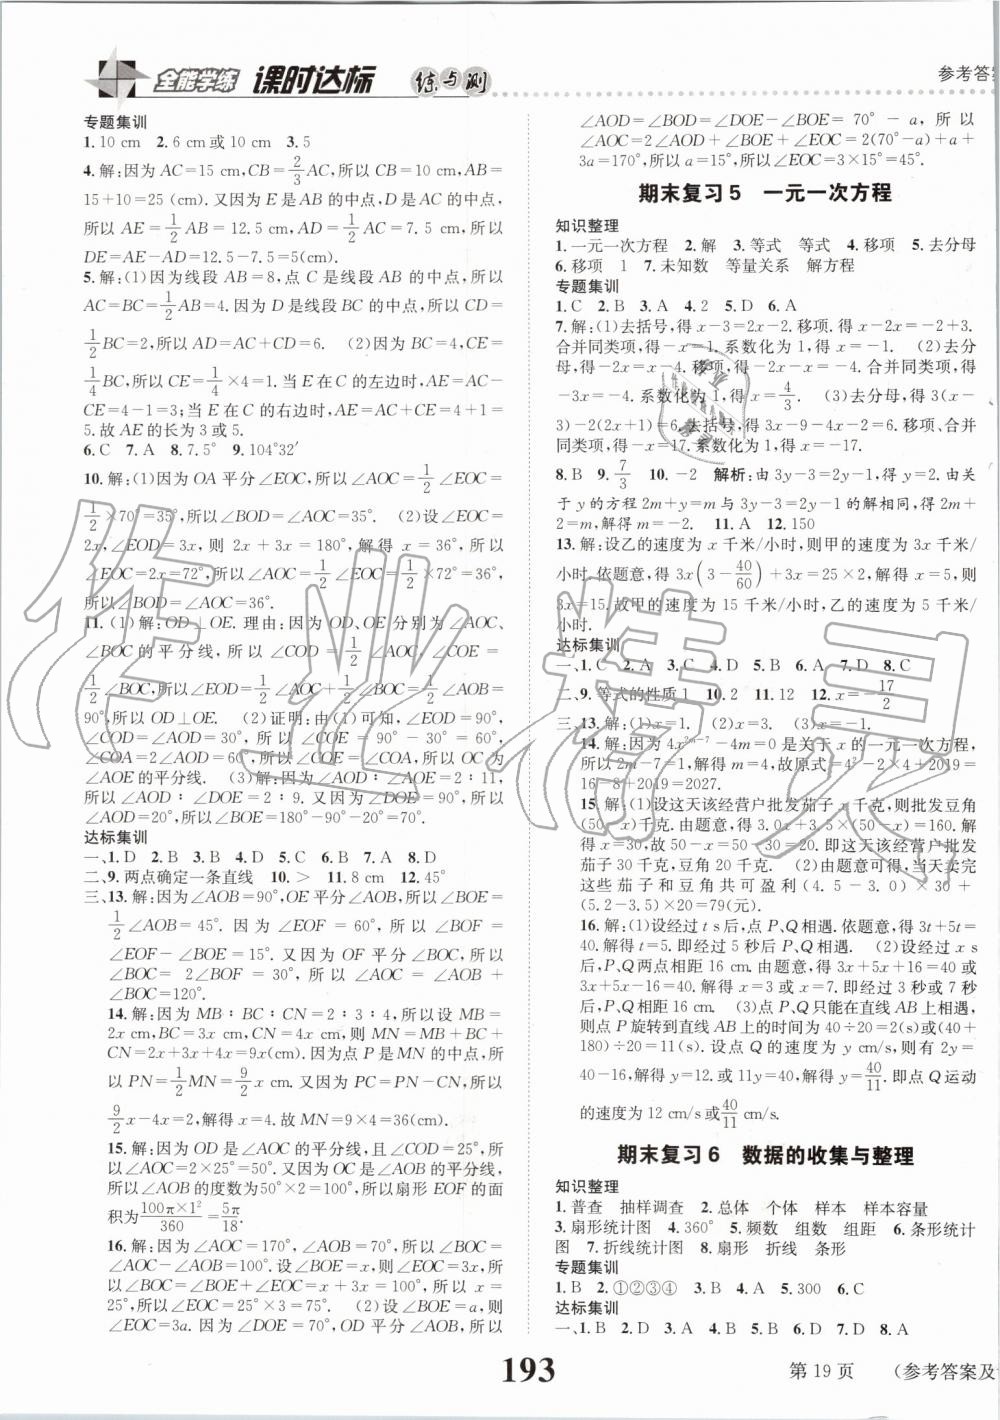 全能学练 课时达标 练与测
参考答案
专题集训
1. 10 cm 2. 6 cm或10 cm 3. 5
4. 解:因为AC=15 cm,CB=2/3AC,所以AB=
15+10=25 (cm). 又因为E是AB的中点,D是AC的中点,
所以AE=1/2AB=12.5 cm,AD=1/2AC=7.5 cm. 所以
DE=AE-AD=12.5-7.5=5(cm).
5. 解:(1)因为线段AB=8,点C是线段AB的中点,所以
AC=BC=1/2AB=4. 因为D是线段BC的中点,所以CD=
1/2BC=2,所以AD=AC+CD=6. (2)因为BC=4,CE=
1/4BC,所以CE=1/4×4=1. 当E在C的左边时,AE=AC-
CE=4-1=3;当E在C的右边时,AE=AC+CE=4+1=
5. 故AE的长为3或5.
6. C 7. A 8. 7.5° 9. 104°32′
10. 解:(1)因为OA平分∠EOC,所以∠AOC=1/2∠EOC=
1/2×70°=35°,所以∠BOD=∠AOC=35°. (2)设∠EOC=
2x,∠EOD=3x,则2x+3x=180°,解得x=36°,所以
∠EOC=2x=72°,所以∠AOC=1/2∠EOC=1/2×72°=36°,
所以∠BOD=∠AOC=36°.
11. (1)解:OD⊥OE. 理由:因为OD、OE分别为∠AOC、
∠BOC的平分线,所以∠COD=1/2∠AOC,∠COE=
1/2∠BOC,所以∠DOE=1/2∠AOC+1/2∠BOC=1/2∠AOB=
90°,所以OD⊥OE. (2)证明:由(1)可知,∠EOD=90°,
∠COD=∠AOD=30°,所以∠COE=90°-30°=60°,
∠COA=2∠AOD=60°,所以∠COE=∠COA,所以OC为
∠AOE的平分线. (3)解:因为∠AOD∶∠AOE=2∶11,
所以∠AOD∶∠DOE=2∶9. 又因为∠DOE=90°,所以
∠AOD=20°,所以∠BOE=180°-90°-20°=70°.
达标集训
一、1. D 2. B 3. D 4. C 5. C 6. B 7. A 8. D
二、9. 两点确定一条直线 10. > 11. 8 cm 12. 45°
三、13. 解:因为∠AOB=90°,OE平分∠AOB,所以∠BOE=
1/2∠AOB=45°. 因为∠EOF=60°,所以∠BOF=
∠EOF-∠BOE=15°. 又因为OF平分∠BOC,所以
∠BOC=2∠BOF=30°,所以∠AOC=∠AOB+
∠BOC=120°.
14. 解:因为MB∶BC∶CN=2∶3∶4,所以设MB=
2x cm,BC=3x cm,CN=4x cm,则MN=MB+BC+
CN=2x+3x+4x=9x(cm). 因为点P是MN的中点,所
以PN=1/2MN=9/2x cm. 又因为PC=PN-CN,所以
9/2x-4x=2,解得x=4. 故MN=9×4=36(cm).
15. 解:因为OD是∠AOC的平分线,且∠COD=25°,所
以∠AOC=2×25°=50°. 又因为OC是∠AOB的平分线,
所以∠AOB的度数为50°×2=100°,所以扇形EOF的面
积为100π×1²/360=5π/18.
16. 解:(1)因为∠AOC=170°,∠AOB=70°,所以∠BOC=
∠AOC-∠AOB=100°. 设∠BOE=x,则∠EOC=3x,所
以∠BOC=∠BOE+∠EOC=x+3x=100°,所以x=
25°,所以∠EOC=25°×3=75°. (2)设∠BOE=a,则
∠EOC=3a. 又因为∠DOE=70°,所以∠AOD=
∠AOD=∠BOD=∠DOE-∠BOE=70°-a,所以
∠AOC=2∠AOD+∠BOE+∠EOC=2(70°-a)+a+
3a=170°,所以a=15°,所以∠EOC=3×15°=45°.
期末复习5 一元一次方程
知识整理
1. 一元一次方程 2. 解 3. 等式 等式 4. 移项 5. 去分母
6. 移项 1 7. 未知数 等量关系 解方程
专题集训
1. C 2. B 3. A 4. 2 5. D 6. A
7. 解:(1)去括号,得x-3=2x-2. 移项,得x-2x=-2+3.
合并同类项,得-x=1. 系数化为1,得x=-1. (2)去分
母,得 移项,得 x=-4. 合并同类项,得
-3x=-4. 系数化为1,得x=4/3. (3)去分母,得3(x-
3)-2(2x+1)=6. 去括号,得3x-9-4x-2=6. 移项、合并同类项,
得-x=17. 系数化为1,得x=-17.
8. B 9. 7/3 10. -2 解析:由3y-3=2y-1,得y=2. 由关
于y的方程2m+y=m与3y-3=2y-1的解相同,得2m+
2=m,解得m=-2. 11. A 12. 150
13. 解:设乙的速度为x千米/小时,则甲的速度为3x千米/
小时. 依题意,得3x(3-40/60)+3x=25×2,解得x=5,则
3x=15. 故甲的速度为15千米/小时,乙的速度为5千米/
小时.
达标集训
一、1. C 2. A 3. C 4. D 5. B 6. A 7. D 8. C
二、9. 等式的性质1 10. 2 11. 12 12. x=-17/2
三、13. 解:(1)x=1. (2)x=3. (3)x=-1.
14. 解:因为4x²ᵐ⁻⁷-4m=0是关于x的一元一次方程,
所以2m-7=1,解得m=4,故原式=4²-2×4+2019=
16-8+2019=2027.
15. 解:(1)设这天该经营户批发茄子x千克,则批发豆角
(50-x)千克. 由题意,得3.0x+3.5×(50-x)=160. 解
得x=30,故50-x=50-30=20. 即这天该经营户批发
茄子30千克,豆角20千克. (2)由题意可得,当天卖完
这些茄子和豆角共可盈利(4.5-3.0)×30+
(5.2-3.5)×20=79(元).
16. 解:(1)设经过t s后,点P、Q相遇. 依题意,得3t+5t=
40. 解得t=5. 即经过5秒后,P、Q两点相遇. (2)设经过x s
后,P、Q两点相距16 cm. 由题意,得3x+5x+16=40或
3x+5x=40+16,解得x=3或x=7. 即经过3秒或7秒后,
P、Q相距16 cm. (3)点P、Q只能在直线AB上相遇,
则点P旋转到直线AB上的时间为40÷20=2(s)或(40+
180)÷20=11(s). 设点Q的速度为y cm/s,则有2y=
40-16,解得y=12. 或11y=40,解得y=40/11. 即点Q运动
的速度为12 cm/s或40/11 cm/s.
期末复习6 数据的收集与整理
知识整理
1. 普查 抽样调查 2. 总体 个体 样本 样本容量
3. 扇形统计图 4. 360° 5. 频数 组数 组距 6. 条形统计
图 7. 折线统计图 8. 扇形 折线 条形
专题集训
1. B 2. ①②③④ 3. B 4. A 5. 300 6. C
达标集训
一、1. B 2. D 3. B 4. A 5. B 6. D 7. D 8. A
193
第19页
(参考答案及
作业精灵